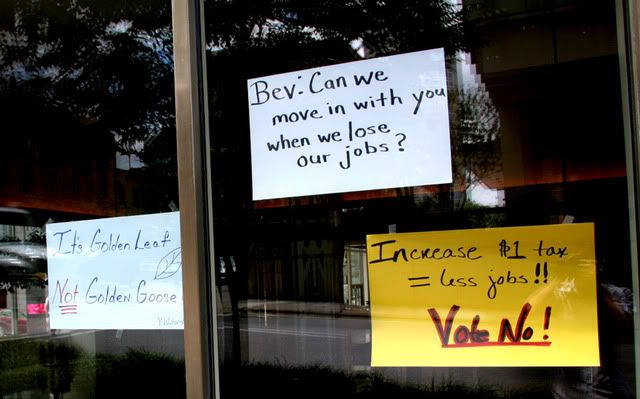 Bev: Can we
move in with you
when we lose
our jobs?
It's Golden Leaf
Not Golden Goose
Increase $1 tax
= less jobs!!
Vote No!